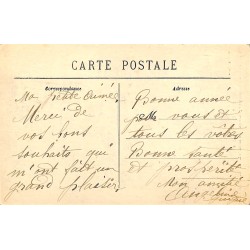 CARTE POSTALE
Correspondance
Adresse
Ma petite Aimée
Merci de
vos bons
souhaits qui
m'ont fait un
grand plaisir
Bonne année
pr vous et
tous les vôtres
Bonne santé
et prospérité
Mon amitié